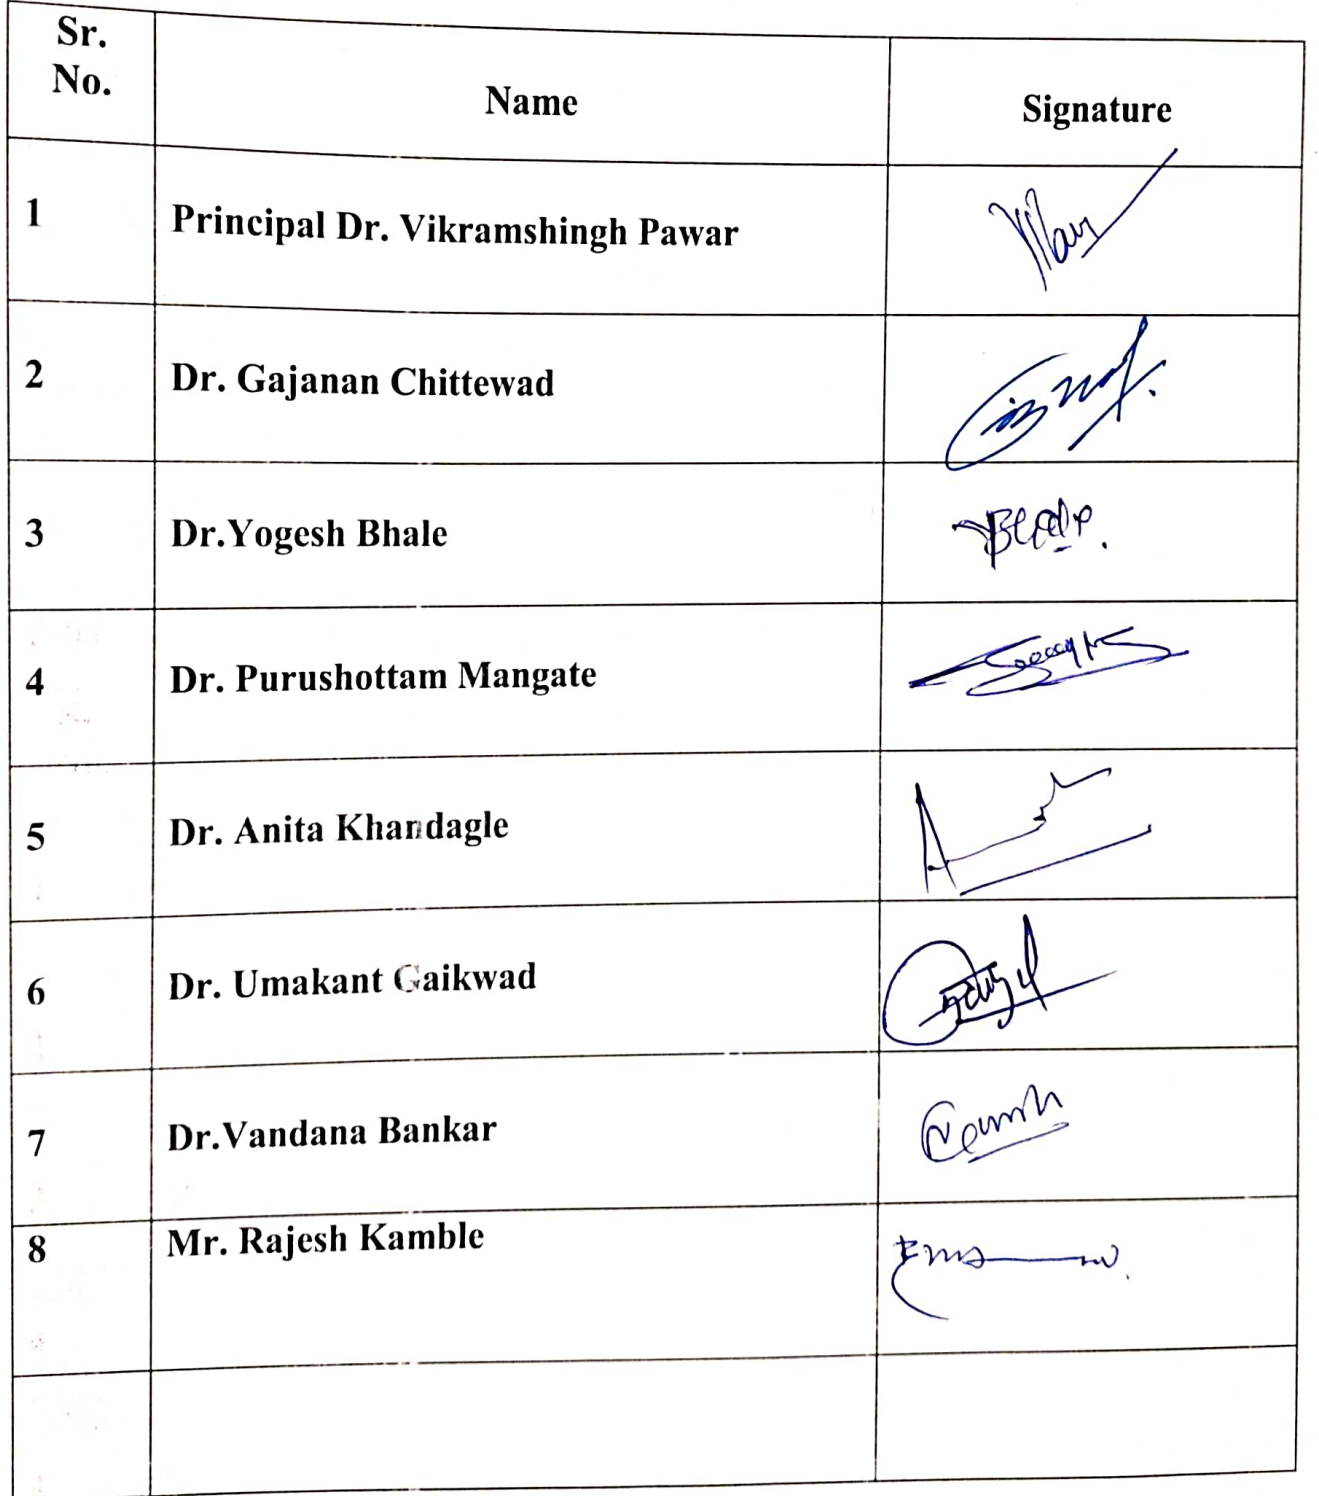 Sr.
No.
Name
Signature
1
Principal Dr. Vikramshingh Pawar
2
Dr. Gajanan Chittewad
3
Dr.Yogesh Bhale
4
Dr. Purushottam Mangate
5
Dr. Anita Khandagle
6
Dr. Umakant Gaikwad
7
Dr.Vandana Bankar
8
Mr. Rajesh Kamble